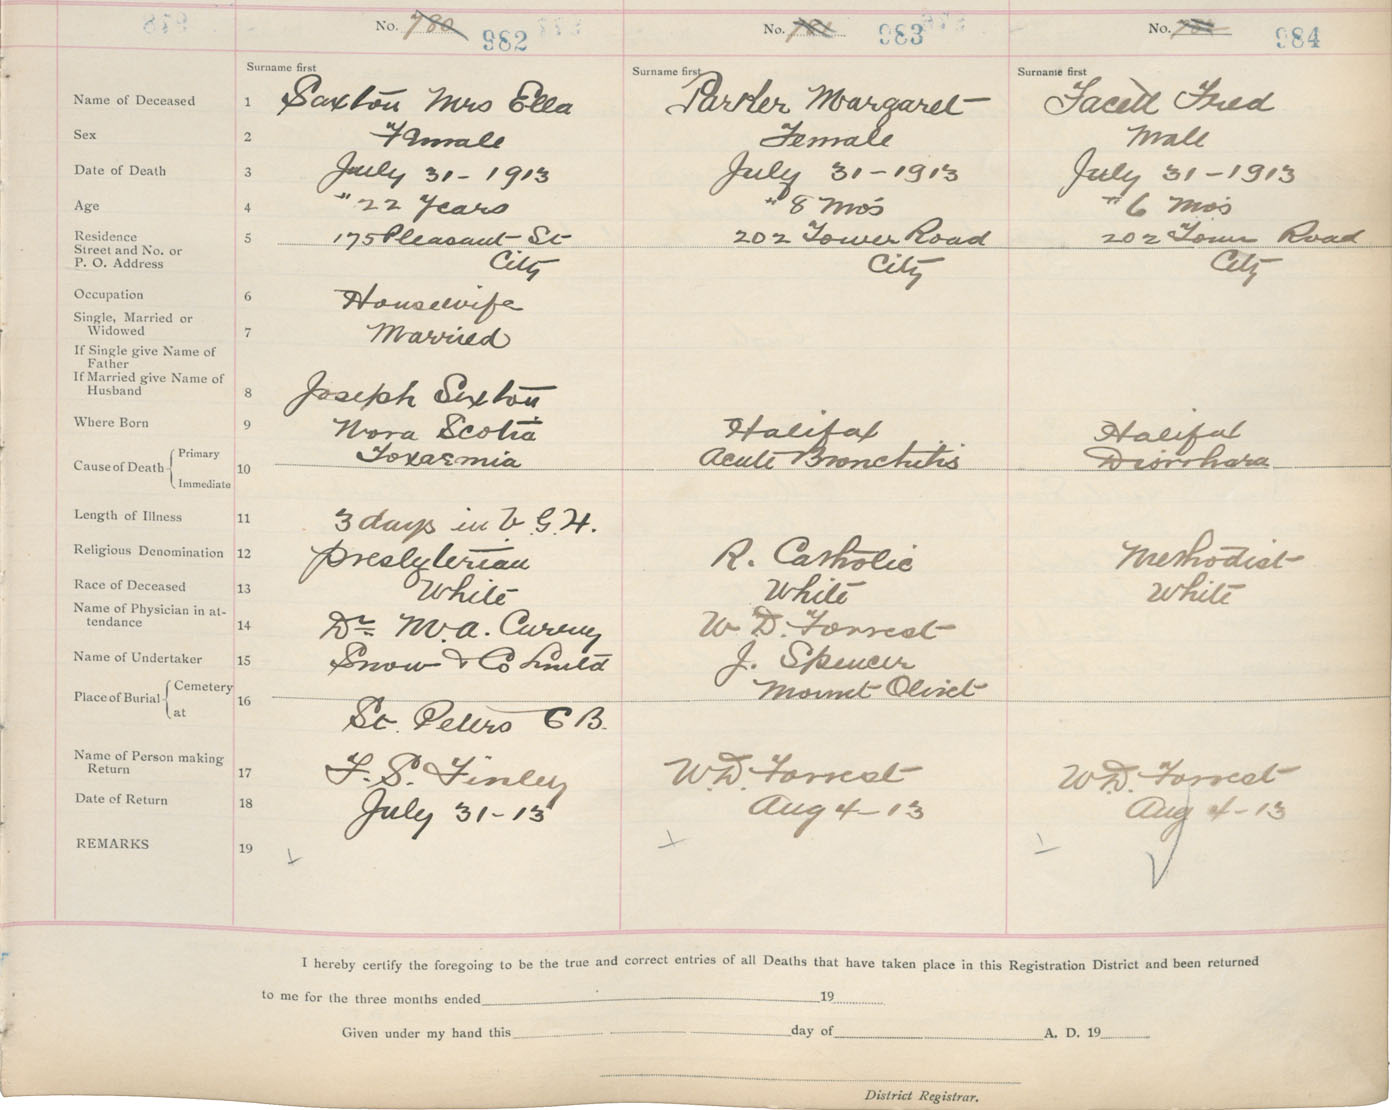 No. 780 982
No. 781 983
No. 984
Surname first
Surname first
Surname first
Name of Deceased 1 Saxton Mrs Ella Parker Margaret Fred
Sex 2 Female Female Male
Date of Death 3 July 31-1913 July 31-1913 July 31-1913
Age 4 "22 Years "8 Mos "6 Mos
Residence
Street and No. or 5 175 Pleasant St 202 Tower Road 202 Tower Road
P. O. Address City City City
Occupation 6 Housewife
Single, Married or
Widowed 7 Married
If Single give Name of
Father
If Married give Name of
Husband 8 Joseph Sexton
Where Born 9 Nova Scotia Halifax Halifax
Cause of Death { Primary
Immediate 10 Toxaemia Acute Bronchitis Diorrhara
Length of Illness 11 3 days in V. G. H.
Religious Denomination 12 Presbyterian R. Catholic Methodist
Race of Deceased 13 White White White
Name of Physician in at-
tendance 14 Dr M. A. Curry W. D. Forrest
Name of Undertaker 15 Snow & Co Limitd J. Spencer
Place of Burial { Cemetery
at 16 Mount Olivet
St. Peters C B.
Name of Person making
Return 17 F. S. Finley W. D. Forrest W. D. Forrest
Date of Return 18 July 31-13 Aug 4-13 Aug 4-13
REMARKS 19
I hereby certify the foregoing to be the true and correct entries of all Deaths that have taken place in this Registration District and been returned
to me for the three months ended 19
Given under my hand this day of A. D. 19
District Registrar.